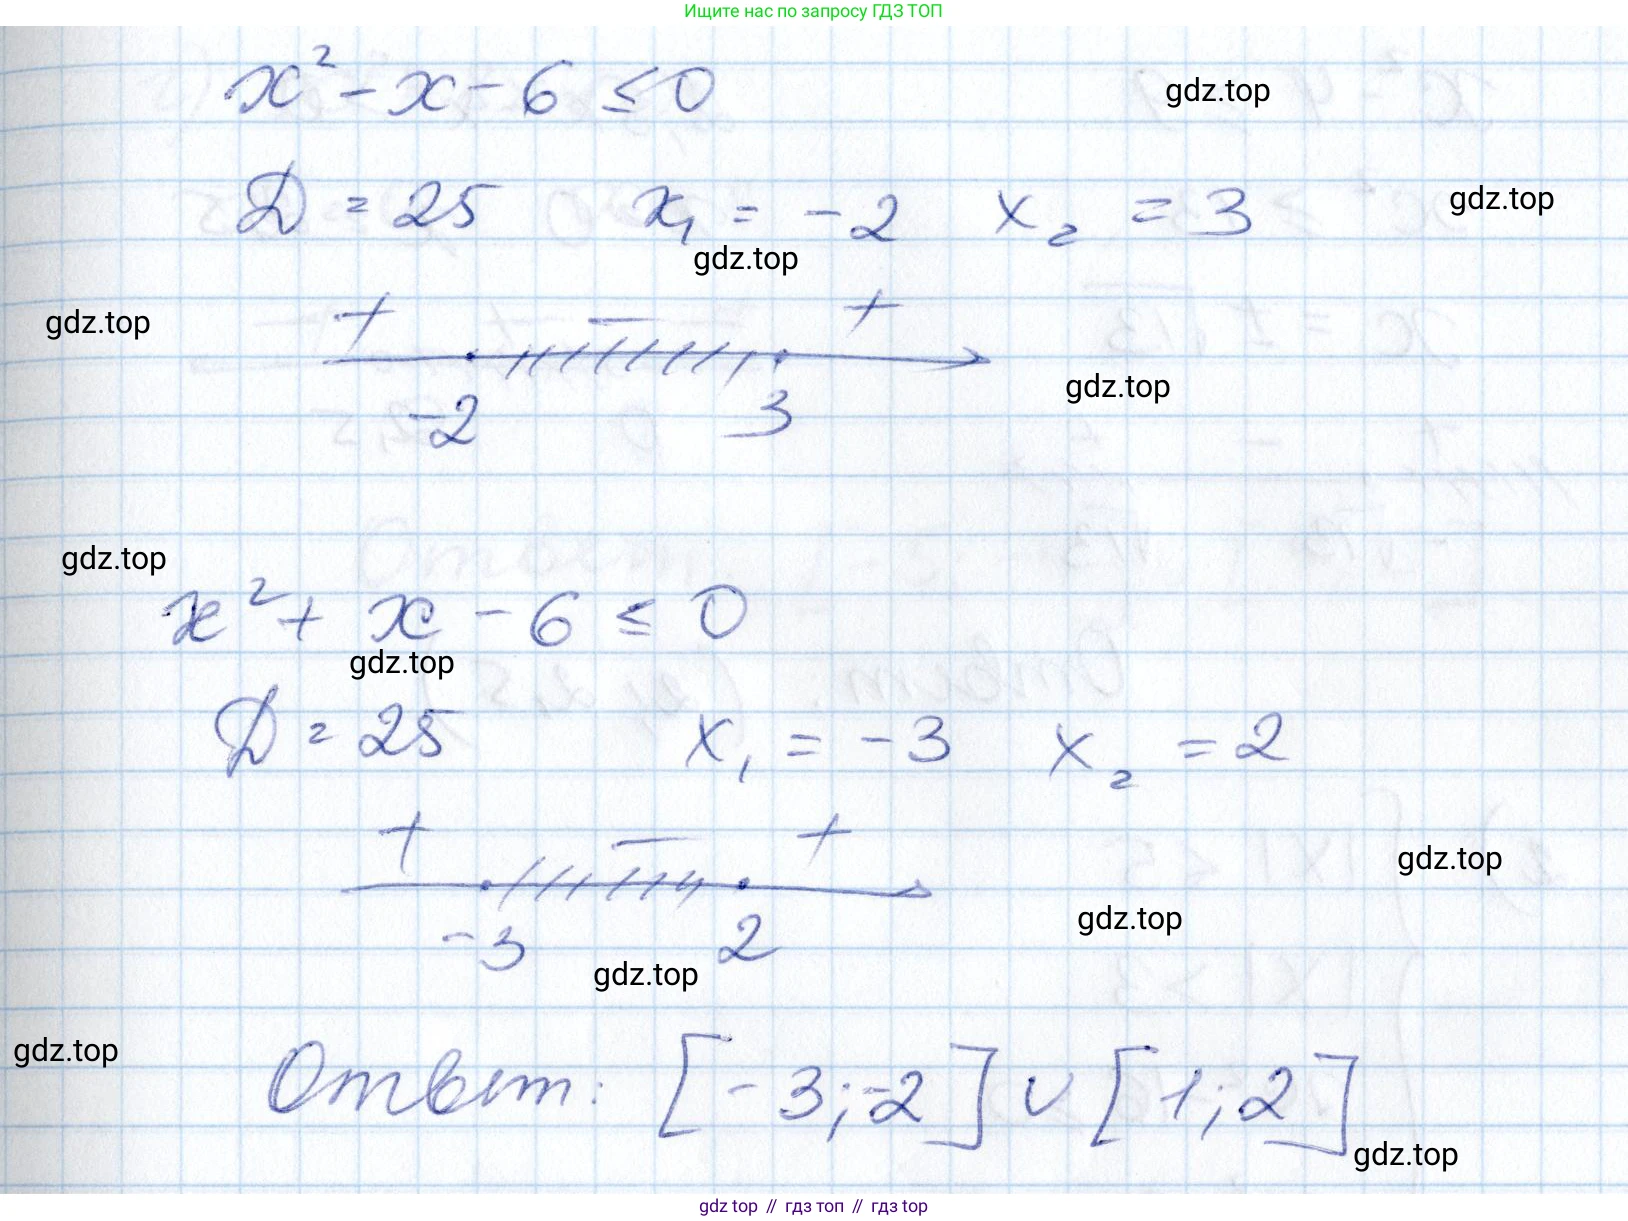 Ищите нас по запросу ГДЗ ТОП
x² - x - 6 ≤ 0
gdz.top
D = 25 x₁ = -2 x₂ = 3
gdz.top
gdz.top
+ - +
gdz.top
-2 3
gdz.top
gdz.top
x² + x - 6 ≤ 0
gdz.top
D = 25 x₁ = -3 x₂ = 2
+ - +
gdz.top
gdz.top
-3 2
gdz.top
gdz.top
Ответ: [-3; -2] ∪ [1; 2]
gdz.top
gdz top // гдз топ // гдз top